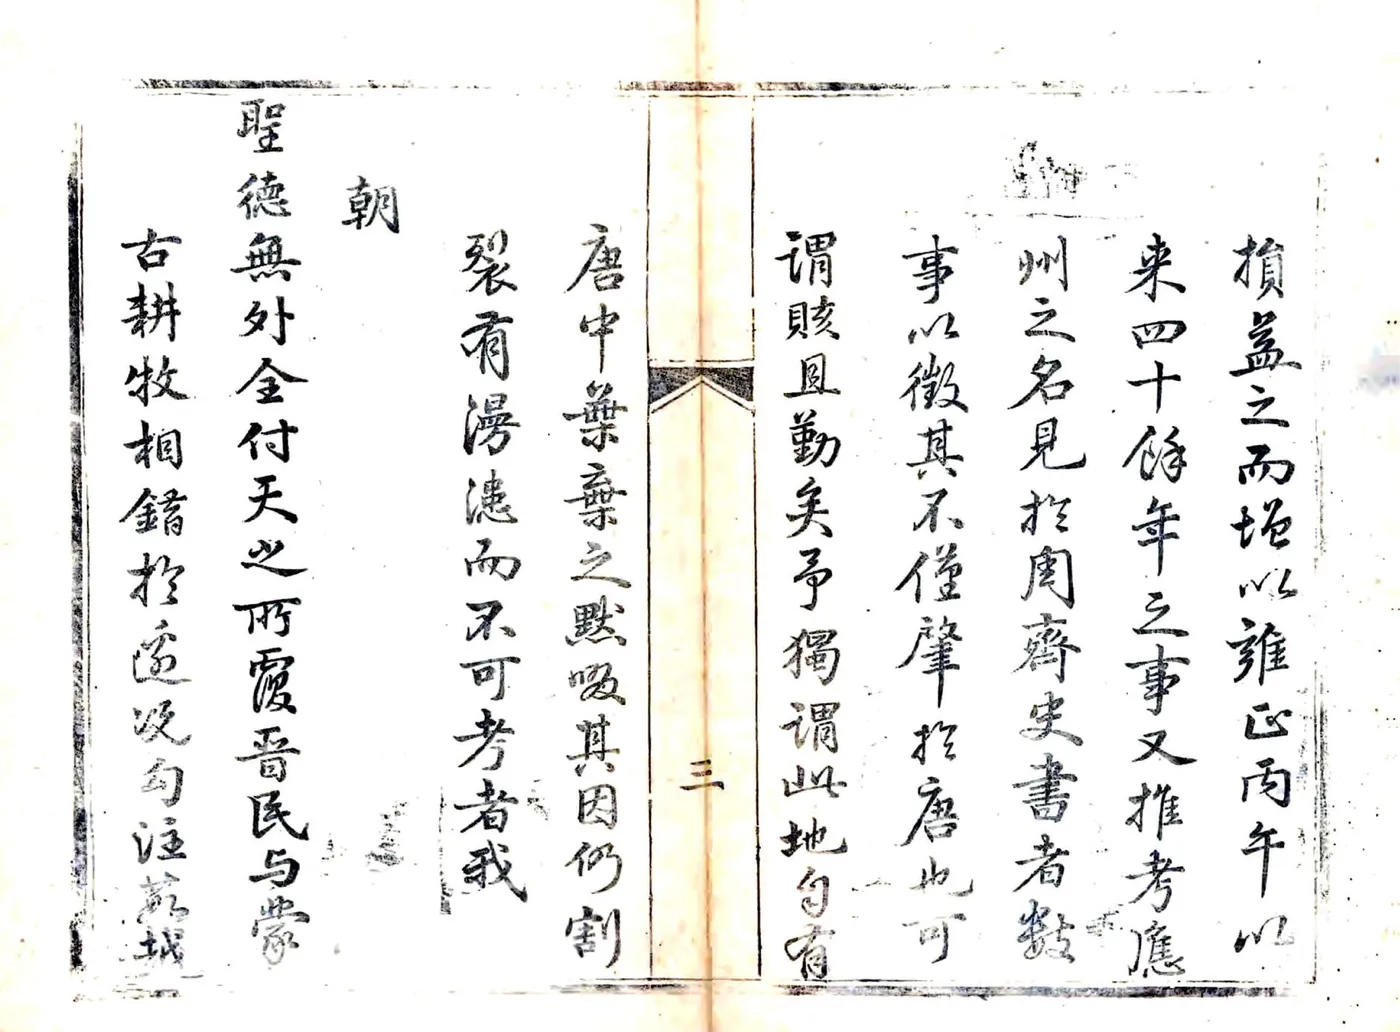 損益之而增以雍正丙午以
来四十餘年之事又推考應
州之名見於周齊史書者數
事以徵其不僅肇於唐也可
謂賅且勤矣予獨謂此地自有
三
唐中葉棄之黙啜其因仍割
裂有漫漶而不可考者我
朝
聖德無外全付天之所覆晋民与蒙
古耕牧相錯於邊况勾注